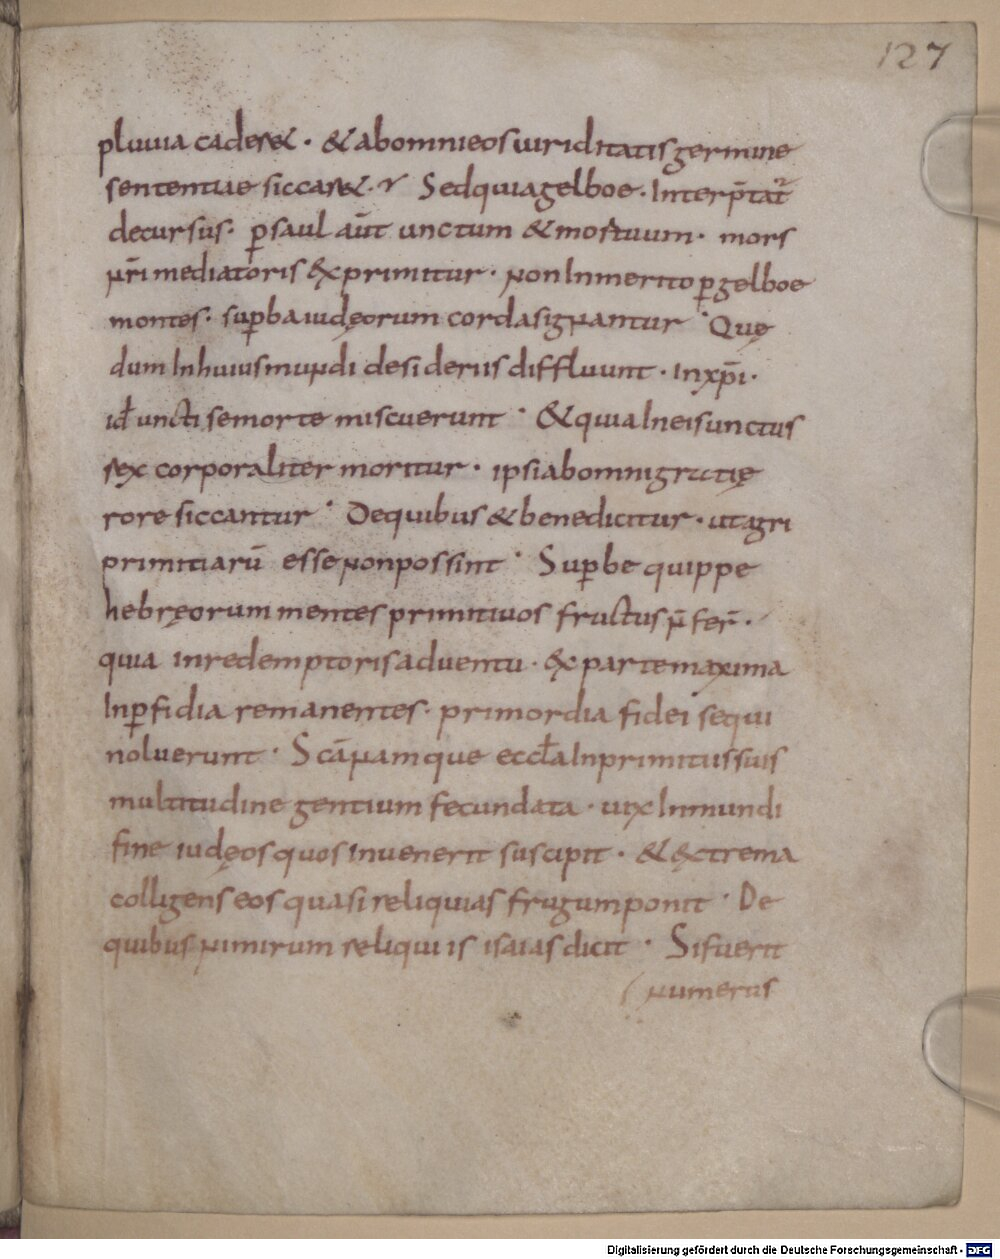 127
pluuia cader&. & ab omnieos uiriditatis germine
sententiae siccar&. r Sed quia gelboe. Interp̄tat᷑
decursus. ꝑ saul aūt unctum & mortuum. mors
nr̄i mediatoris exprimitur. non Inmerito ꝑ gelboe
montes. suꝑba iudęorum corda signantur · Quę
dum In huius mundi desideriis diffluunt. in xp̄i.
id÷ uncti se morte miscuerunt · & quia In eis unctus
rex corporaliter moritur. ipsi ab omni gratię
rore siccantur · De quibus & bene dicitur. ut agri
primitiarū esse non possint · Suꝑbe quippe
hebręorum mentes primitiuos fructus n̄ fer̄.
quia in redemptoris aduentu. ex parte maxima
In ꝑfidia remanentes. primordia fidei sequi
noluerunt · Scā namque eccl̄a In primitus suis
multitudine gentium fecundata. uix In mundi
fine iudęos quos inuenerit suscipit. & extrema
colligens eos quasi reliquias frugum ponit · De
quibus nimirum reliquiis isaias dicit · Si fuerit
numerus
Digitalisierung gefördert durch die Deutsche Forschungsgemeinschaft - DFG